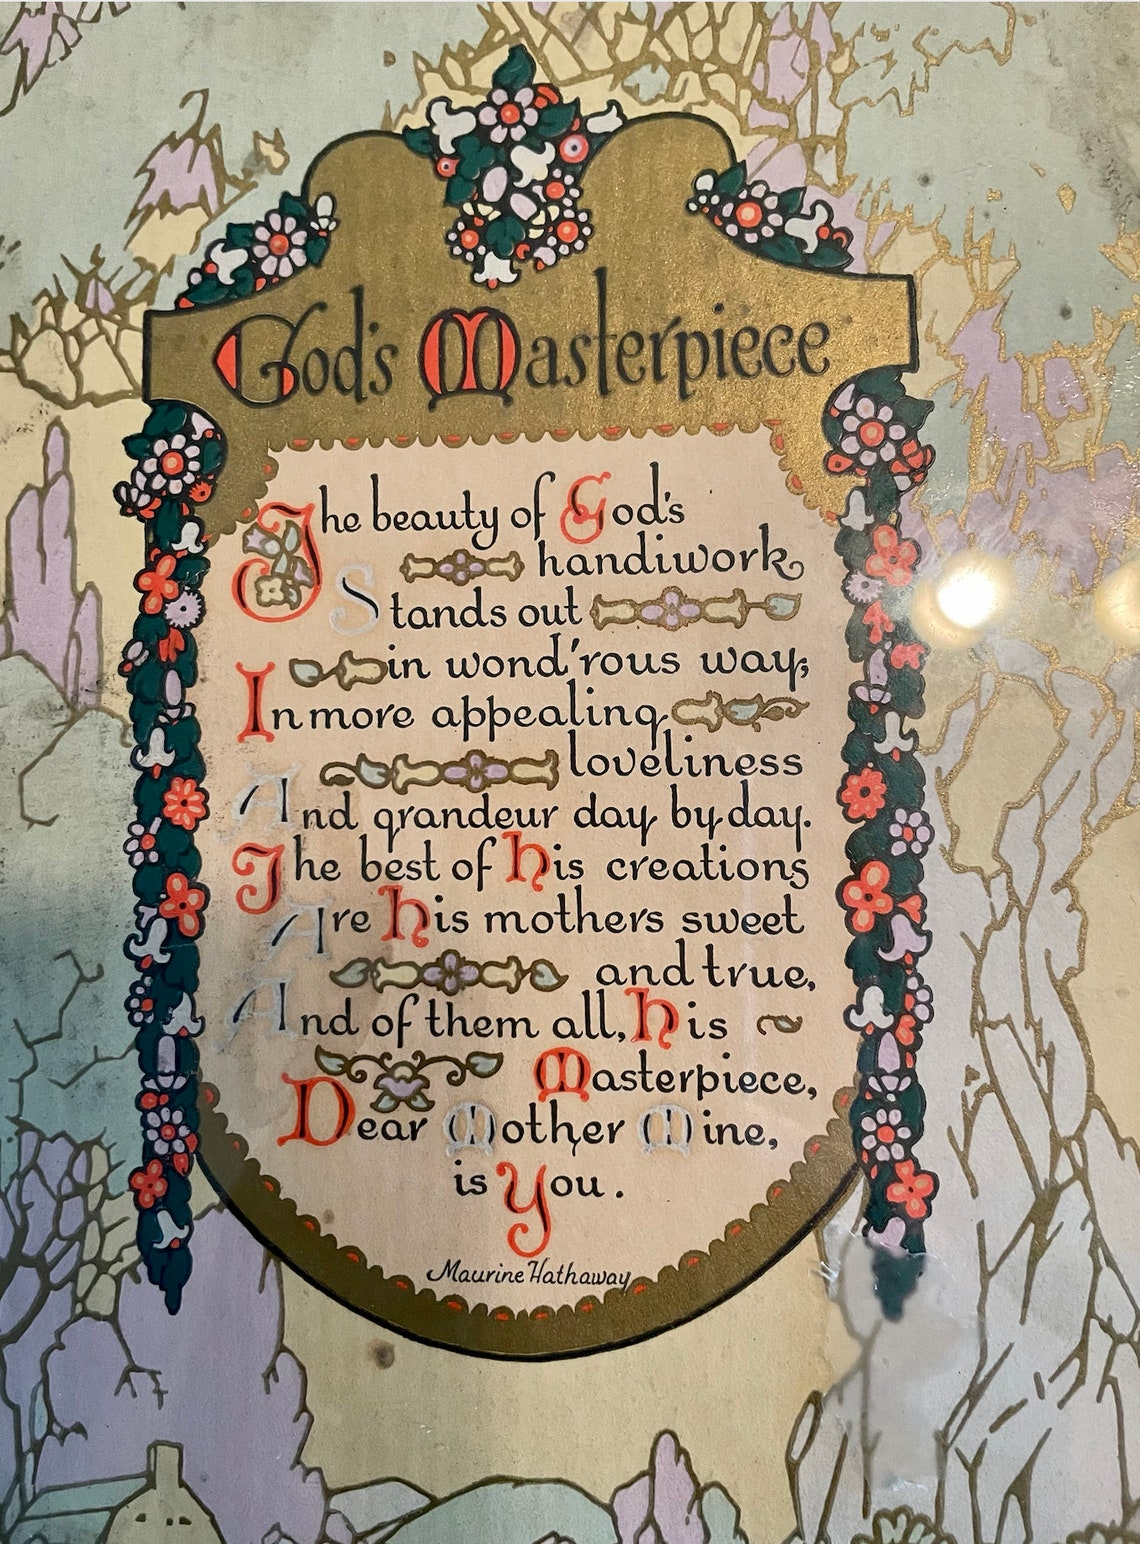 God's Masterpiece
The beauty of God's
handiwork
Stands out
in wond'rous way;
In more appealing
loveliness
And grandeur day by day.
The best of his creations
Are his mothers sweet
and true,
And of them all, his
Masterpiece,
Dear Mother Mine,
is You.
Maurine Hathaway